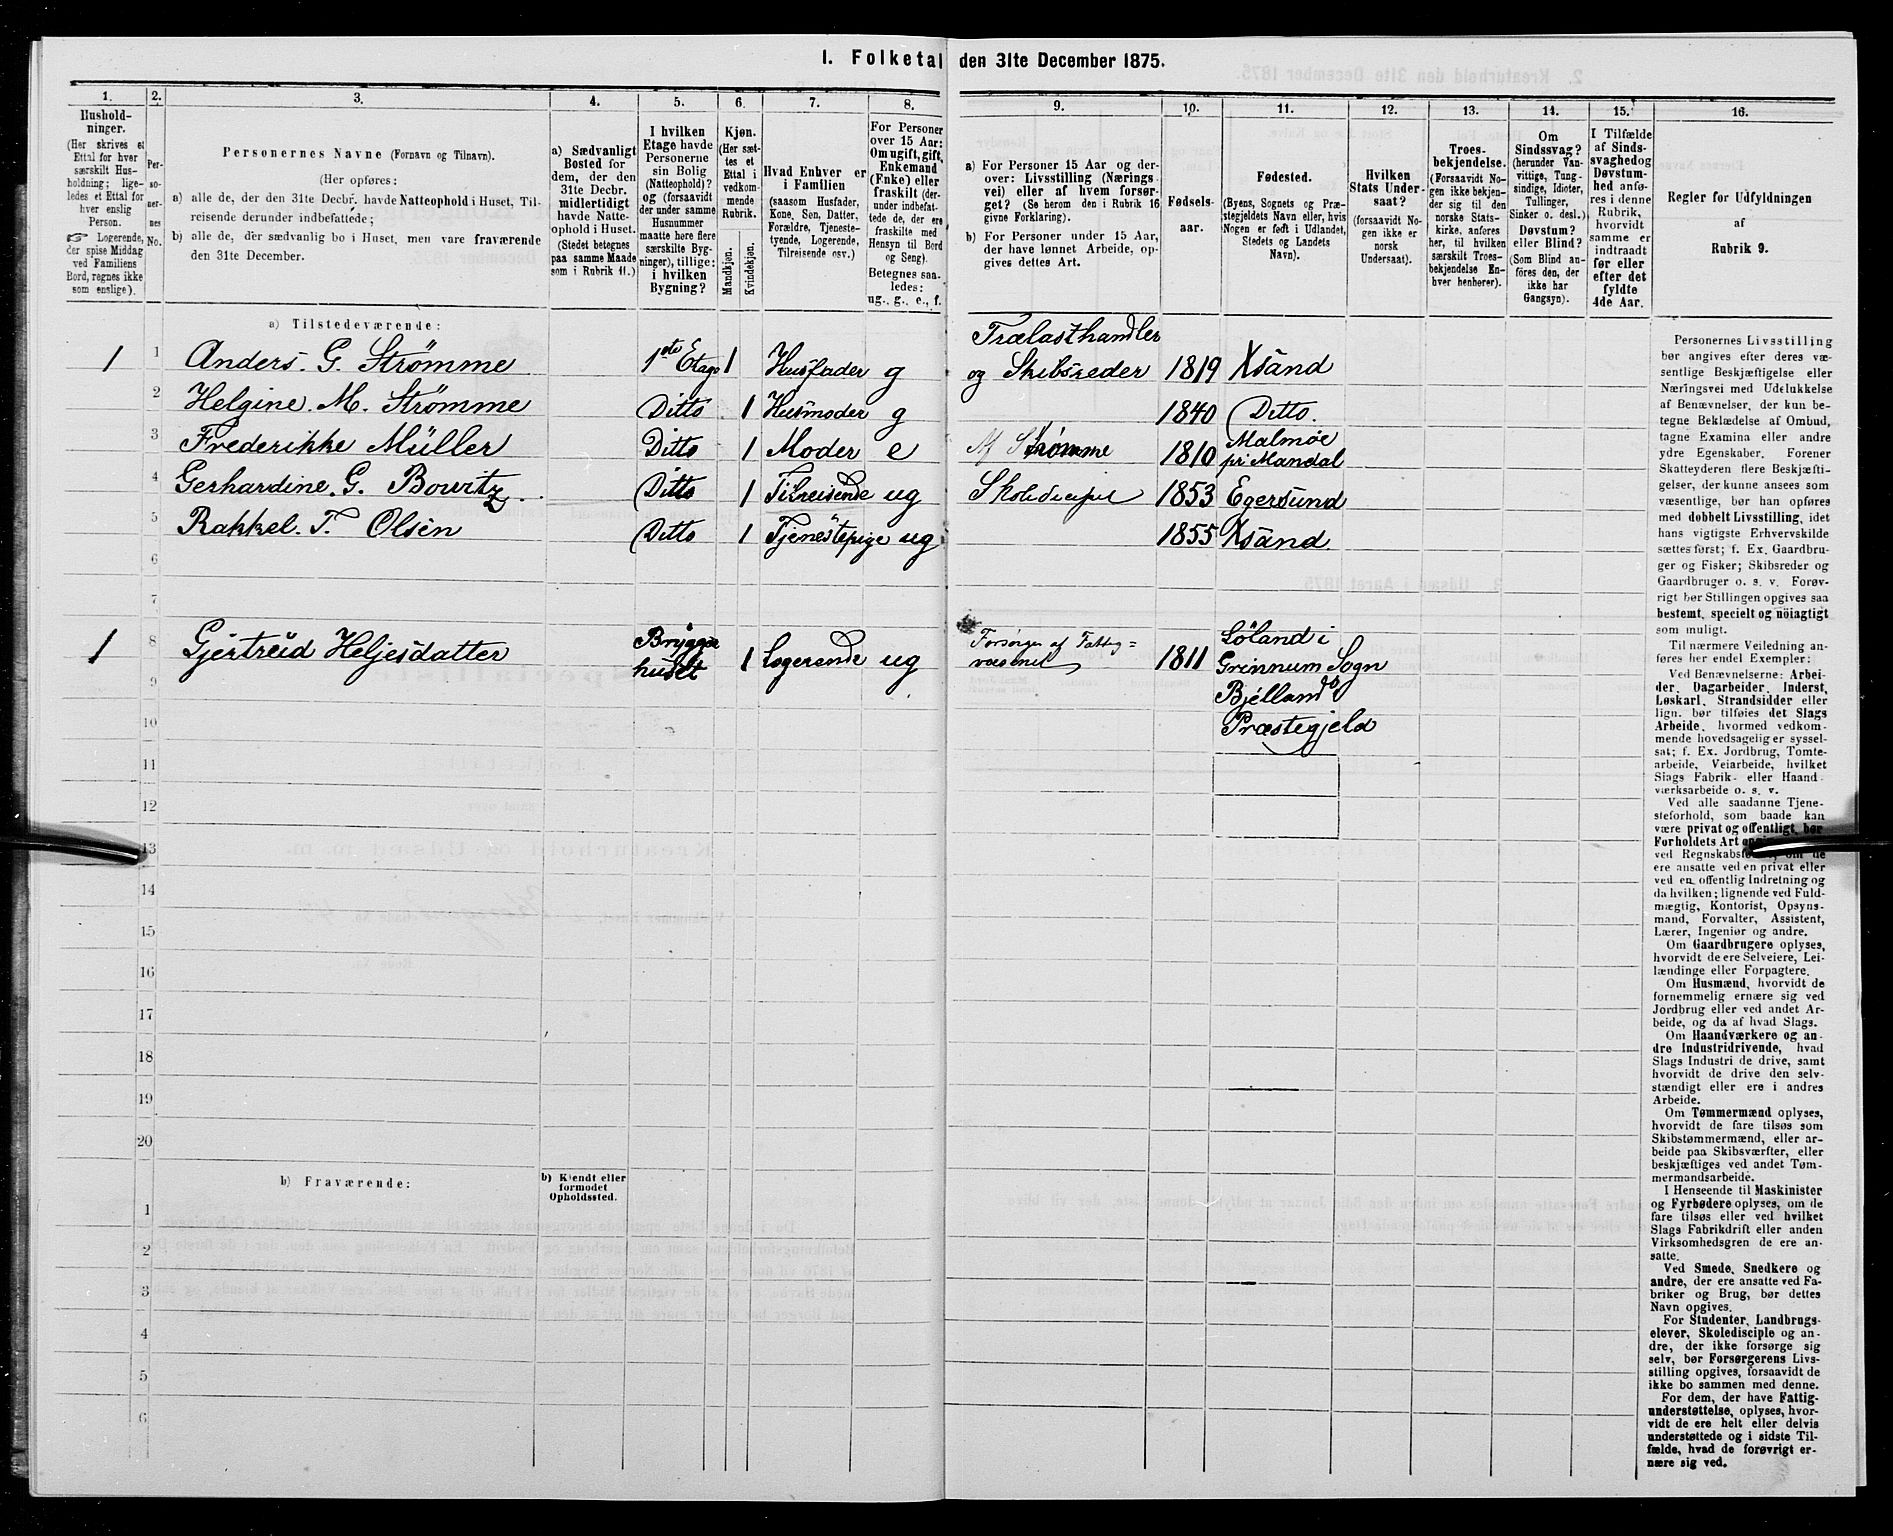 1. Folketal den 31te December 1875.
1.
Hushold-
ninger.
(Her skrives et
Ettal for hver
særskilt Hus-
holdning; lige-
ledes et Ettal for
hver enslig
Person.
☞ Logerende,
der spise Middag
ved Familiens
Bord, regnes ikke
som enslige).
2.
Per-
so-
ner-
nes
No.
3.
Personernes Navne (Fornavn og Tilnavn).
(Her opføres:
a) alle de, der den 31te Decbr. havde Natteophold i Huset, Til-
reisende derunder indbefattede;
b) alle de, der sædvanlig bo i Huset, men vare fraværende
den 31te December.
4.
a) Sædvanligt
Bosted for
dem, der den
31te Decbr.
midlertidigt
havde Natte-
ophold i Huset.
(Stedet betegnes
paa samme Maade
som i Rubrik 11.)
5.
I hvilken
Etage havde
Personerne
sin Bolig
(Natteophold)?
og (forsaavidt
der under samme
Husnummer
maatte høre flere
særskilte Byg-
ninger), tillige:
i hvilken
Bygning?
6.
Kjøn.
(Her sæt-
tes et
Ettal i
vedkom-
mende
Rubrik.
Mandkjøn.
Kvindekjøn.
7.
Hvad Enhver er
i Familien
(saasom Husfader,
Kone, Søn, Datter,
Forældre, Tjeneste-
tyende, Logerende,
Tilreisende osv.)
8.
For Personer
over 15 Aar:
Om ugift, gift,
Enkemand
(Enke) eller
fraskilt (der-
under indbefat-
tede de, der ere
fraskilte med
Hensyn til Bord
og Seng).
Betegnes saa-
ledes:
ug., g., e., f.
9.
a) For Personer 15 Aar og der-
over: Livsstilling (Nærings-
vei) eller af hvem forsør-
get? (Se herom den i Rubrik 16
givne Forklaring).
b) For Personer under 15 Aar,
der have lønnet Arbeide, op-
gives dettes Art.
10.
Fødsels-
aar.
11.
Fødested.
(Byens, Sognets og Præ-
stegjeldets Navn eller, hvis
Nogen er født i Udlandet,
Stedets og Landets
Navn).
12.
Hvilken
Stats Under-
saat?
(forsaavidt No-
gen ikke er
norsk
Undersaat).
13.
Troes-
bekjendelse.
(Forsaavidt No-
gen ikke bekjen-
der sig til den
norske Stats-
kirke, anføres
her, til hvilken
særskilt Troes-
bekjendelse En-
hver henhører).
14.
Om
Sindssvag?
(herunder Van-
vittige, Tung-
sindige, Idioter,
Tullinger,
Sinker o. desl.)
Døvstum?
eller Blind?
(Som Blind an-
føres den, der
ikke har
Gangsyn).
15.
I Tilfælde
af Sinds-
svaghed og
Døvstum-
hed anfø-
res i denne
Rubrik,
hvorvidt
samme er
indtraadt
før eller
efter det
fyldte
4de Aar.
16.
Regler for Udfyldningen
af
Rubrik 9.
a) Tilstedeværende:
Trælasthandler
1 1 Anders. G. Strømme 1ste Etage 1 Husfader g og Skibsreder 1819 Xsand
2 Helgine. M. Strømme Ditto 1 Husmoder g 1840 Ditto.
3 Frederikke Müller Ditto 1 Moder e Af Strømme 1810 Malmøe
pr Mandal
4 Gerhardine. G. Bowitz Ditto 1 Tilreisende ug Skoledicipel 1853 Egersund
5 Rakkel. T. Olsen Ditto 1 Tjenestepige ug 1855 Xsand.
6
7
1 8 Gjertreid Heljesdatter Brygge- 1 Logerende ug Forsørges af Fattig= 1811 Løland i
huset væsenet Grinnum Sogn
9 Bjelland
10 Præstegjeld
11
12
13
14
15
16
17
18
19
20
b) Fraværende:
b) Kjendt eller
formodet
Opholdssted.
1
2
3
4
5
6
Personernes Livsstilling
bør angives efter deres væ-
sentlige Beskjæftigelse eller
Næringsvei med Udelukkelse
af Benævnelser, der kun be-
tegne Beklædelse af Ombud,
tagne Examina eller andre
ydre Egenskaber. Forener
Skatteyderen flere Beskjæfti-
gelser, der kunne ansees som
væsentlige, bør han opføres
med dobbelt Livsstilling, idet
hans vigtigste Erhvervskilde
sættes først; f. Ex. Gaardbru-
ger og Fisker; Skibsreder og
Gaardbruger o. s. v. Forøv-
rigt bør Stillingen opgives saa
bestemt, specielt og nöiagtigt
som muligt.
Til nærmere Veiledning an-
føres her endel Exempler:
Ved Benævnelserne: Arbei-
der, Dagarbeider, Inderst,
Løskarl, Strandsidder eller
lign. bør tilføies det Slags
Arbeide, hvormed vedkom-
mende hovedsagelig er syssel-
sat; f. Ex. Jordbrug, Tomte-
arbeide, Veiarbeide, hvilket
Slags Fabrik- eller Haand-
værksarbeide o. s. v.
Ved alle saadanne Tjene-
steforhold, som baade kan
være privat og offentligt, bør
Forholdets Art
ved Regnskabsf om de
ere ansatte ved en privat eller
ved en offentlig Indretning og
da hvilken; lignende ved Fuld-
mægtig, Kontorist, Opsyns-
mand, Forvalter, Assistent,
Lærer, Ingeniør og andre.
Om Gaardbrugere oplyses,
hvorvidt de ere Selveiere, Lei-
lændinge eller Forpagtere.
Om Husmænd, hvorvidt de
fornemmelig ernære sig ved
Jordbrug eller ved andet Ar-
beide, og da af hvad Slags.
Om Haandværkere og an-
dre Industridrivende, hvad
Slags Industri de drive, samt
hvorvidt de drive den selv-
stændigt eller ere i andres
Arbeide.
Om Tømmermænd oplyses,
hvorvidt de fare tilsøs som
Skibstømmermænd, eller ar-
beide paa Skibsværfter, eller
beskjæftiges ved andet Tøm-
mermandsarbeide.
I Henseende til Maskinister
og Fyrbødere oplyses, om de
fare tilsøs eller ved hvilket
Slags Fabrikdrift eller anden
Virksomhedsgren de ere an-
satte.
Ved Smede, Snedkere og
andre, der ere ansatte ved Fa-
briker og Brug, bør dettes
Navn opgives.
For Studenter, Landbrugs-
elever, Skoledisciple og an-
dre, der ikke forsørge sig
selv, bør Forsørgerens Livs-
stilling opgives, forsaavidt de
ikke bo sammen med denne.
For dem, der have Fattig-
understøttelse, oplyses, hvor-
vidt de ere helt eller delvis
understøttede og i sidste Til-
fælde, hvad de forøvrigt er-
nære sig ved.